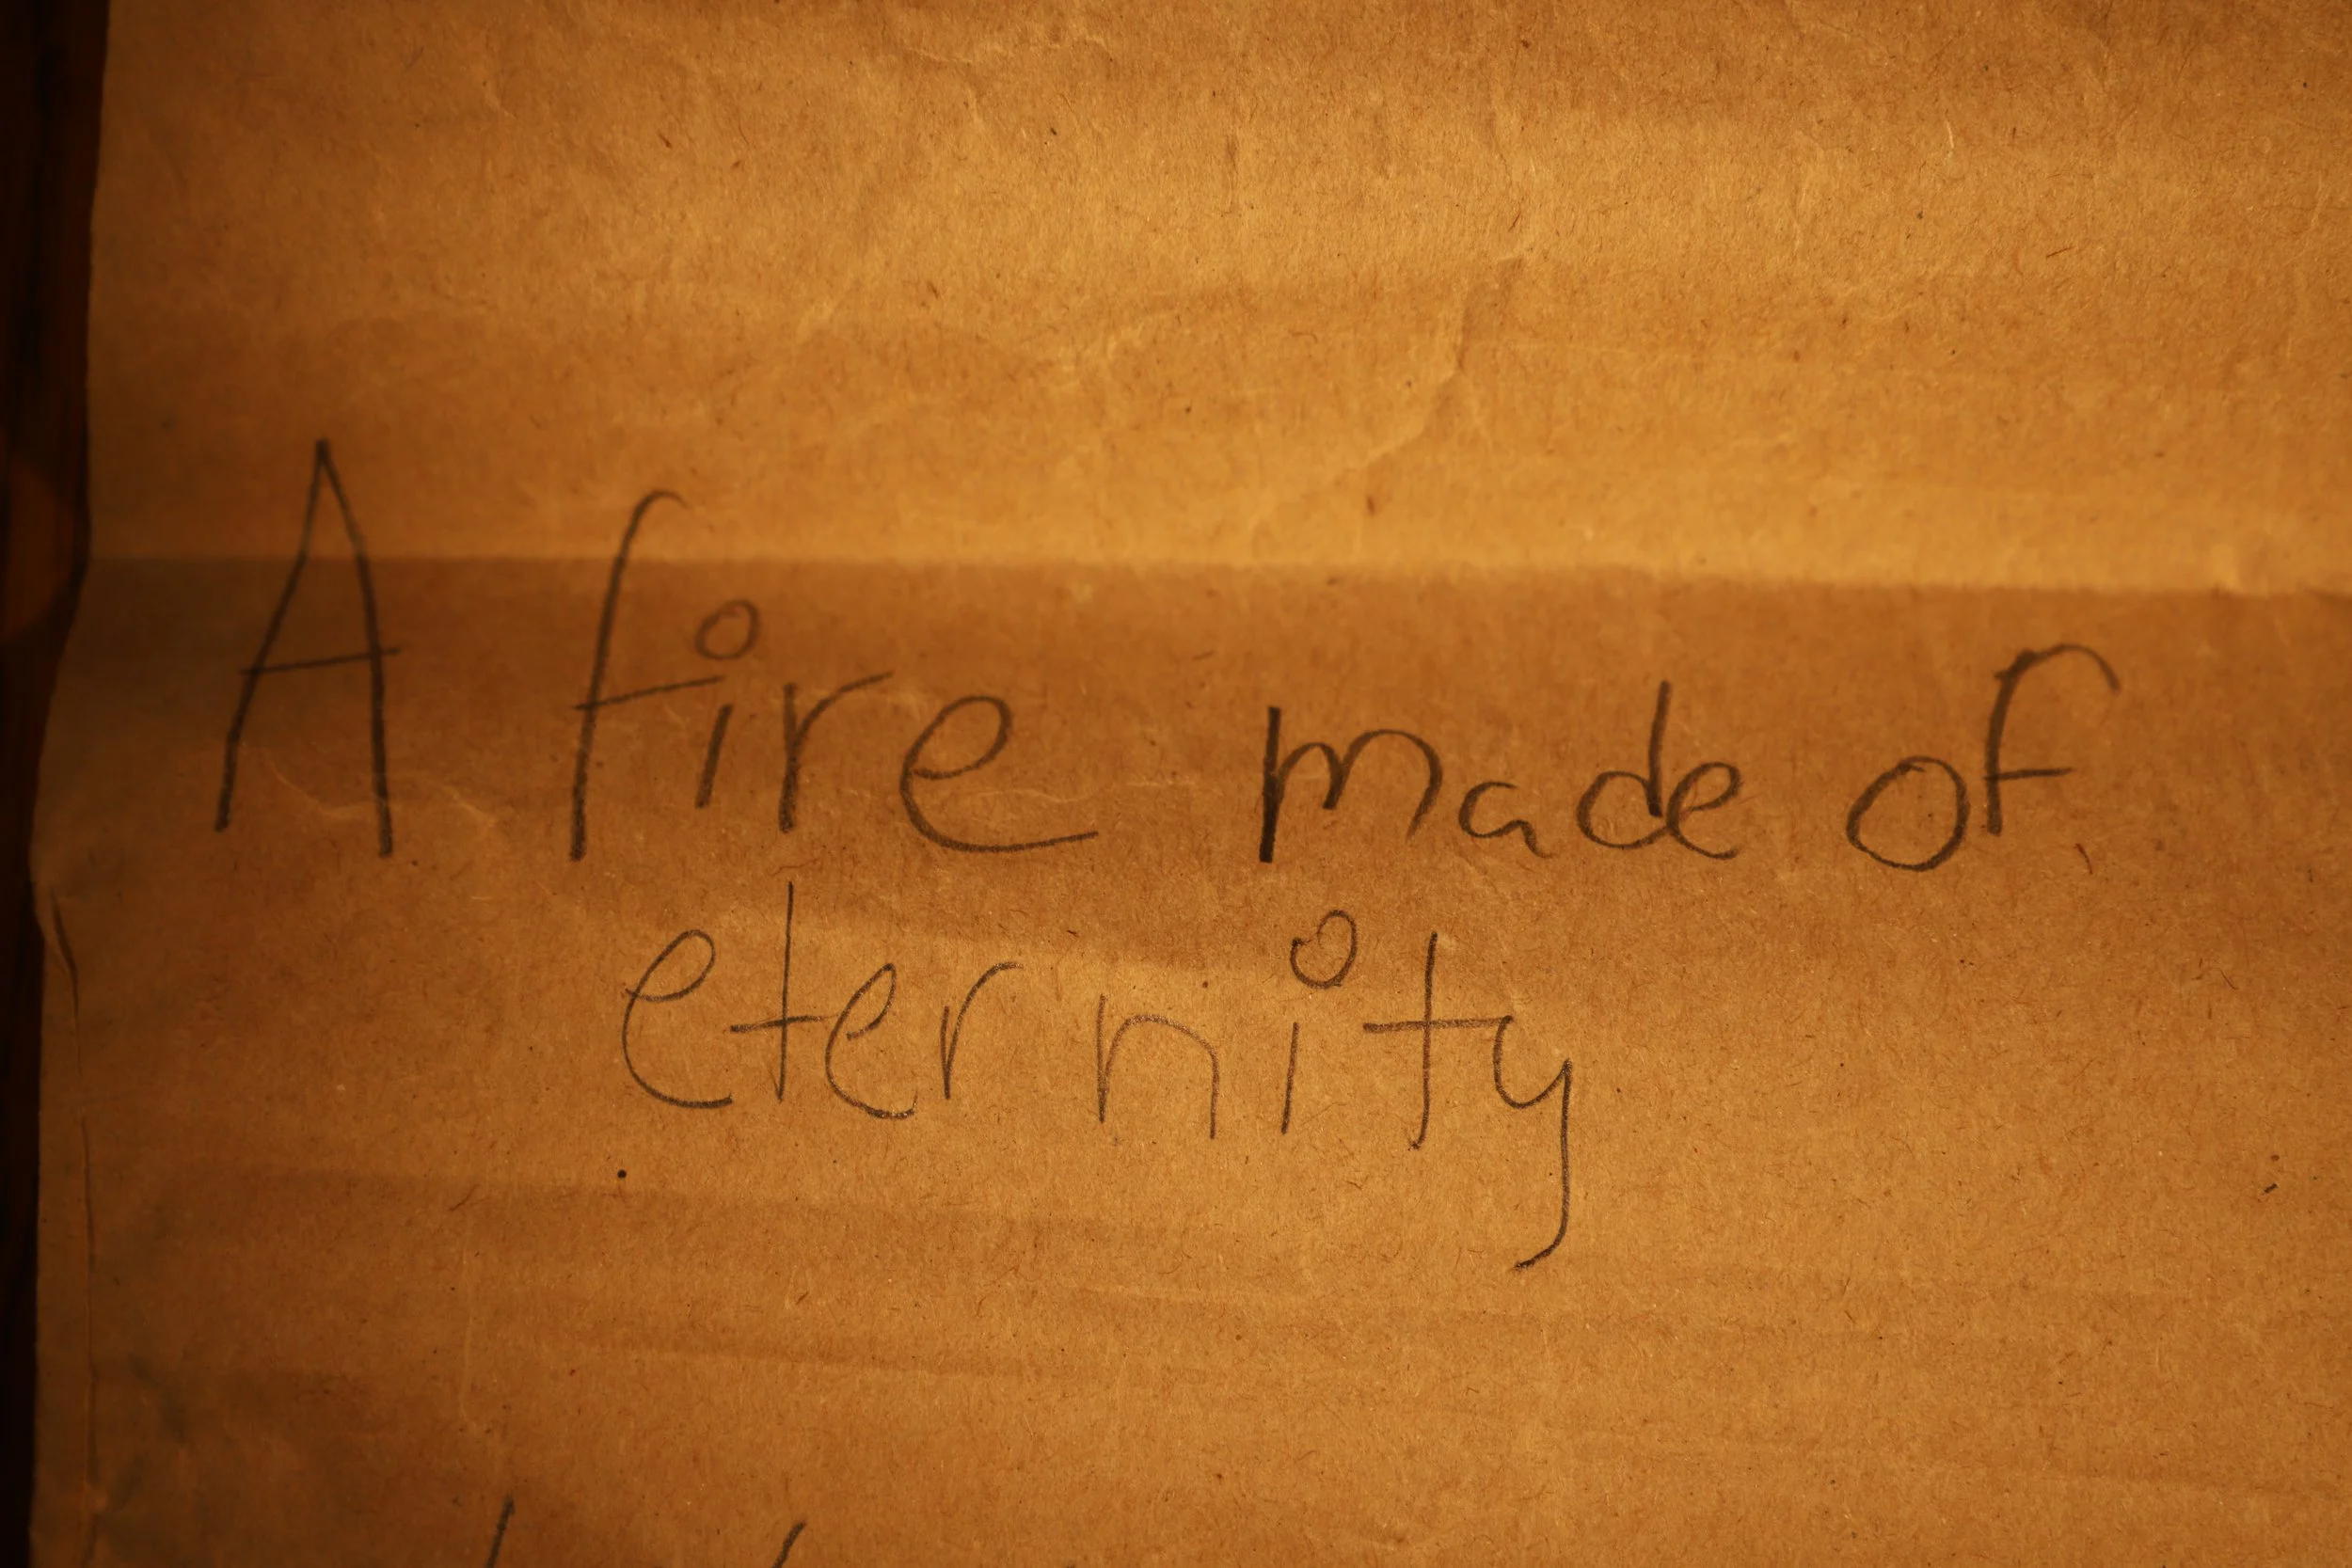 A fire made of
eternity